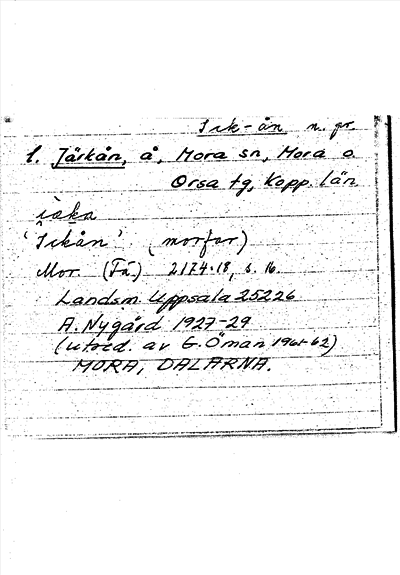 Irk-ån n. gr.
l. Järkån, å, Mora sn, Mora o.
Orsa tg, Kopp. län.
'Irkån' (morfar)
Mor. (Få.) 2174:18, s. 16.
Landsm. Uppsala 25226
A. Nygård 1927-29
(utred. av G. Öman 1961-62)
MORA, DALARNA.